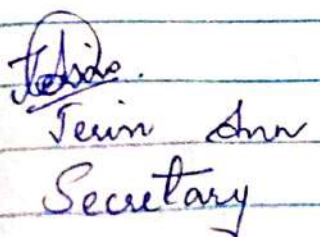 Jerin Ann
Secretary